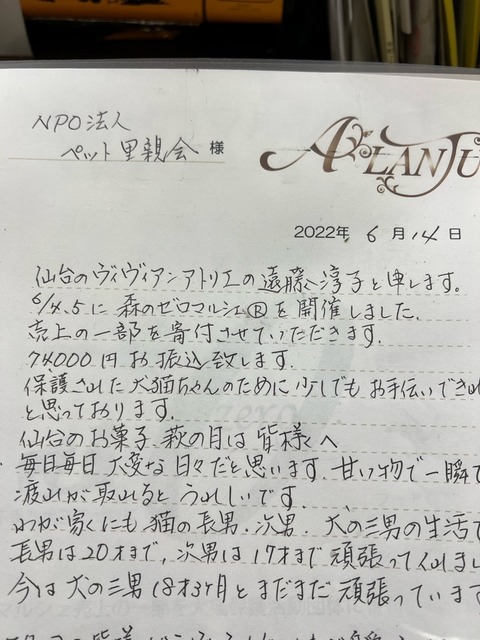 NPO法人
ペット里親会 様
ALANJU
2022年 6月14日
仙台のヴィヴィアンアトリエの遠藤淳子と申します。
6/4.5に 森のゼロマルシェ®を開催しました.
売上の一部を寄付させていただきます.
74000円お振込致します.
保護された犬猫ちゃんのために少しでもお手伝いでき
と思っております.
仙台のお菓子.萩の月は皆様へ
毎日毎日 大変な日々だと思います.甘い物で一瞬で
疲れが取れるとうれしいです.
わが家にも猫の長男.次男.犬の三男の生活で
長男は20才まで,次男は17才まで頑張って
今は犬の三男18才3ヶ月とまだまだ頑張っていま